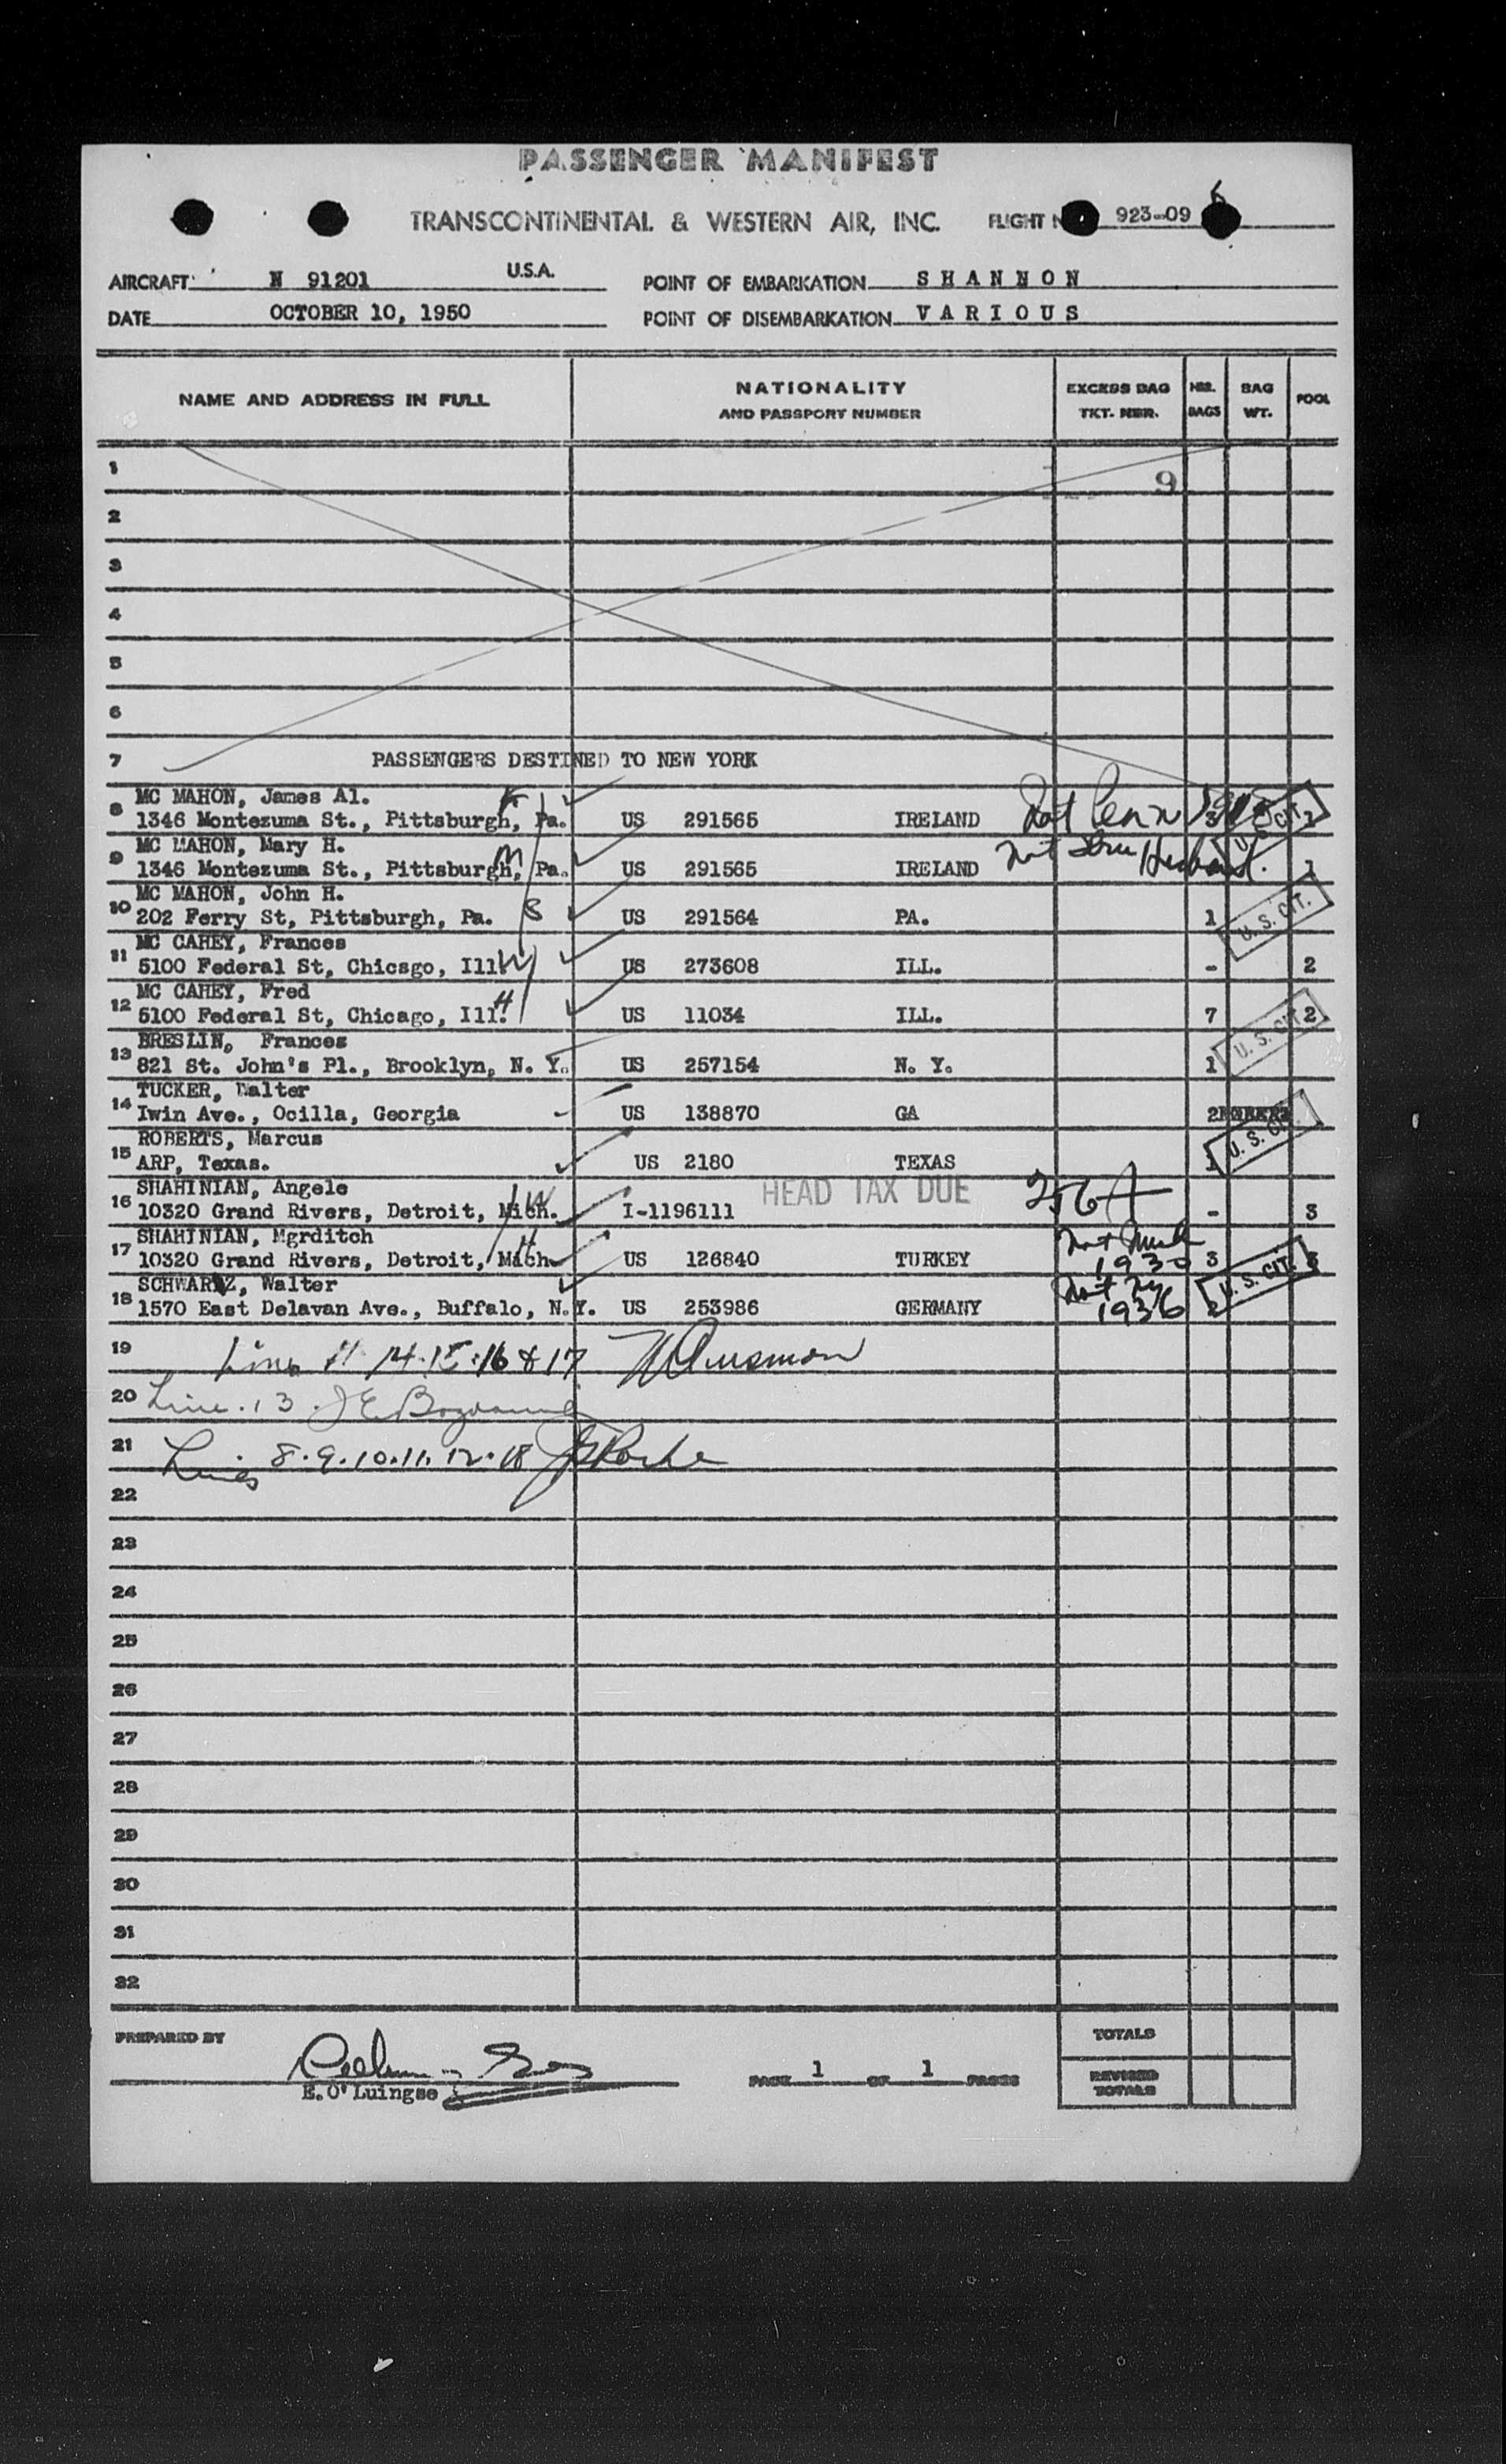 PASSENGER MANIFEST
TRANSCONTINENTAL & WESTERN AIR, INC. FLIGHT 923-09
AIRCRAFT N 91201 U.S.A. POINT OF EMBARKATION S H A N N O N
DATE OCTOBER 10, 1950 POINT OF DISEMBARKATION V A R I O U S
NAME AND ADDRESS IN FULL NATIONALITY AND PASSPORT NUMBER EXCESS BAG TKT. NBR. NBR. BAGS BAG WT. POOL
1 9
2
3
4
5
6
7 PASSENGERS DESTINED TO NEW YORK
MC MAHON, James Al. F
8 1346 Montezuma St., Pittsburgh, Pa. US 291565 IRELAND Nat Penn 3 U.S. CIT. 1
MC MAHON, Mary H. M
9 1346 Montezuma St., Pittsburgh, Pa. US 291565 IRELAND Nat thru Husband. 1
MC MAHON, John H.
10 202 Ferry St, Pittsburgh, Pa. S US 291564 PA. 1 U. S. CIT.
MC CAHEY, Frances
11 5100 Federal St, Chicsgo, Ill W US 273608 ILL. - 2
MC CAHEY, Fred
12 5100 Federal St, Chicago, Ill. H US 11034 ILL. 7 2
BRESLIN, Frances
13 821 St. John's Pl., Brooklyn, N. Y. US 257154 N. Y. 1 U. S. CIT.
TUCKER, Walter
14 Iwin Ave., Ocilla, Georgia US 138870 GA 2
ROBERTS, Marcus
15 ARP, Texas. US 2180 TEXAS 1 U. S. CIT.
SHAHINIAN, Angele
16 10320 Grand Rivers, Detroit, Mich. W I-1196111 HEAD TAX DUE - 3
SHAHINIAN, Mgrditch
17 10320 Grand Rivers, Detroit, Mich H US 126840 TURKEY Nat Mich 1930 3 3
SCHWARTZ, Walter
18 1570 East Delavan Ave., Buffalo, N.Y. US 253986 GERMANY Nat Ny 1936 2 U. S. CIT.
19 14.15.16 & 17
20 Line. 13. J E
21 Lines 8.9.10.11.12.18
22
23
24
25
26
27
28
29
30
31
32
PREPARED BY
E. O'Luingse
PAGE 1 OF 1 PAGES
TOTALS
REVISED TOTALS